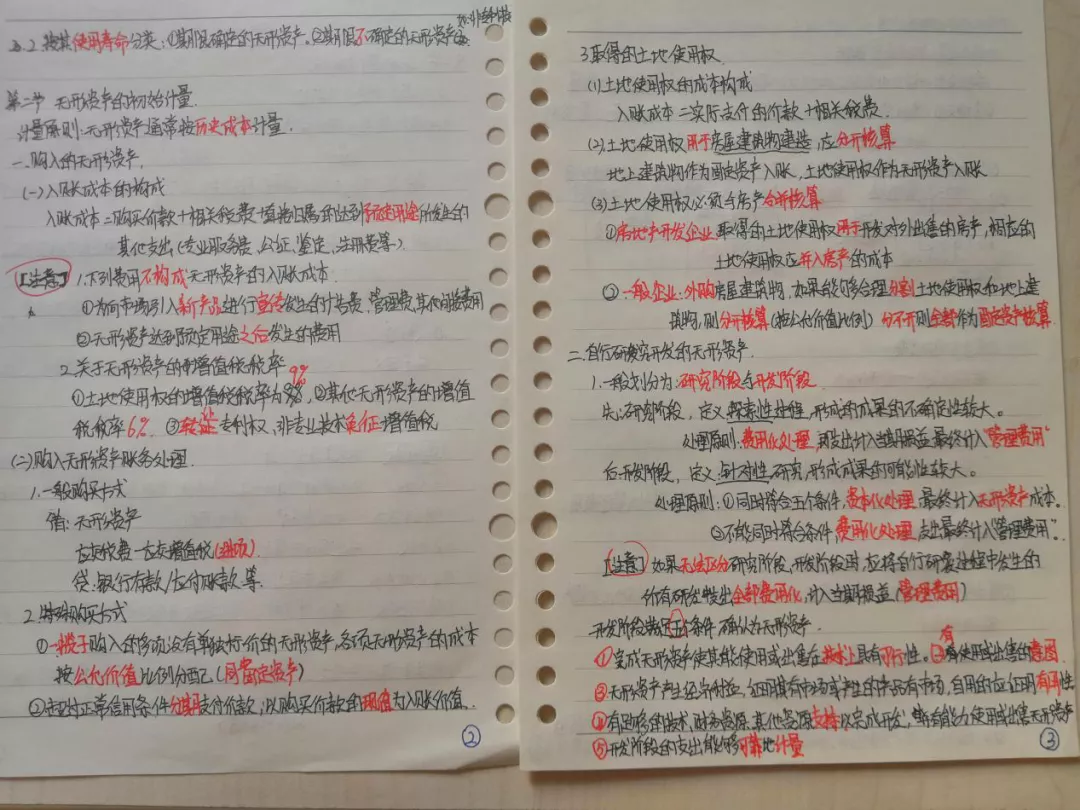 2. 按其使用寿命分类:①期限确定的无形资产。②期限不确定的无形资产
第二节 无形资产的初始计量.
计量原则:无形资产通常按历史成本计量.
一.购入的无形资产.
(一)入账成本的构成
入账成本=购买价款+相关税费+直接归属的达到预定用途所发生的
其他支出(专业服务费、公证、鉴定、注册费等.)
【注意】1.下列费用不构成无形资产的入账成本
①为问市场引入新产品进行宣传发生的广告费、管理费、其他间接费用
②无形资产达到预定用途之后发生的费用
2.关于无形资产的增值税税率
①土地使用权的增值税税率为9%,②其他无形资产的增值
税税率6%. ③转让专利权、非专业技术免征增值税
(二)购入无形资产账务处理.
1.一般购买方式
借:无形资产
应交税费—应交增值税(进项)
贷:银行存款/应付账款等.
2.特殊购买方式
①一揽子购入的多项没有单独标价的无形资产,各项无形资产的成本
按公允价值比例分配.(同固定资产)
②超过正常信用条件分期支付价款,以购买价款的现值为入账价值.
②
3.取得的土地使用权.
(1)土地使用权的成本构成
入账成本=实际支付的价款+相关税费.
(2)土地使用权用于房屋建筑物建造,应分开核算
地上建筑物作为固定资产入账,土地使用权作为无形资产入账
(3)土地使用权必须与房产合并核算
①房地产开发企业取得的土地使用权用于开发对外出售的房产,相应的
土地使用权应并入房产的成本
②一般企业:外购房屋建筑物,如果能够合理分割土地使用权和地上建
筑物,则分开核算(按公允价值比例) 分不开则全部作为固定资产核算.
二.自行研究开发的无形资产.
1.一般划分为:研究阶段与开发阶段.
先:研究阶段,定义:探索性过程,形成的成果的不确定性较大。
处理原则:费用化处理,即支出计入当期损益,最终计入“管理费用”
后:开发阶段,定义:针对性研究,形成成果的可能性较大。
处理原则:①同时符合五个条件,资本化处理,最终计入无形资产成本。
②不能同时符合条件,费用化处理,支出最终计入“管理费用”。
【注意】如果无法区分研究阶段、开发阶段时,应将自行研发过程中发生的
所有研发支出全部费用化,计入当期损益(管理费用)
开发阶段满足五条件,确认为无形资产.
①完成无形资产使其能使用或出售在技术上具有可行性。②有使用或出售的意图
③无形资产产生经济利益,证明其有市场或产生的产品有市场,自用的应证明有用性
④有足够的技术、财务资源、其他资源支持以完成开发,并有能力使用或出售无形资产
⑤开发阶段的支出能够可靠地计量
③